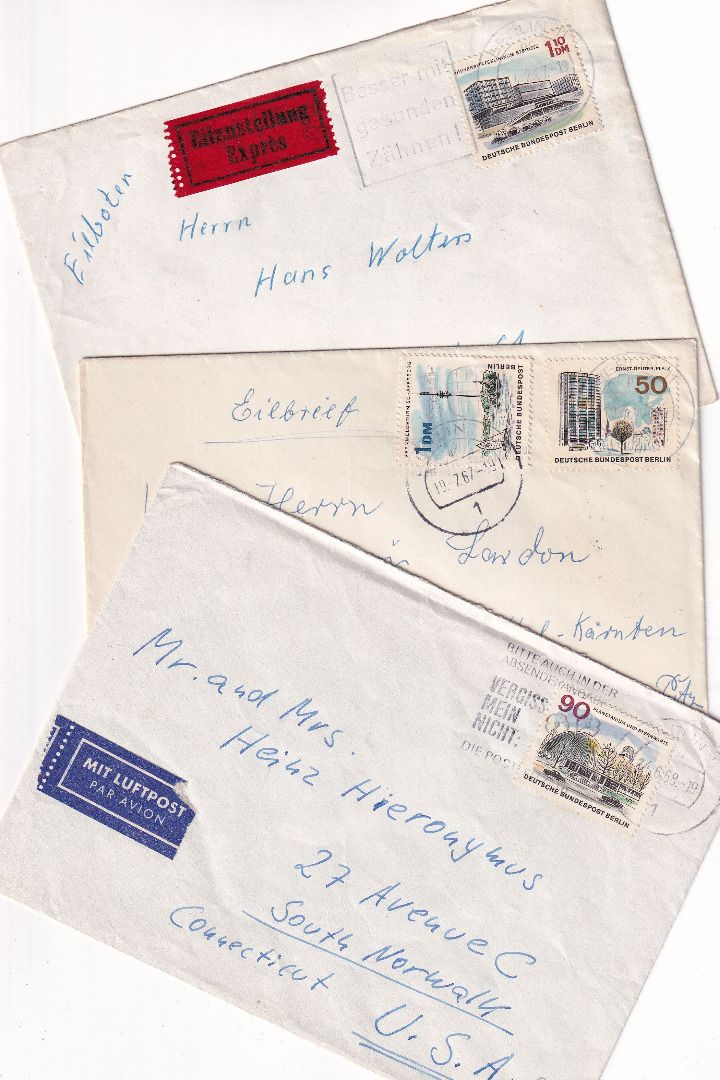 1 10 DM
DEUTSCHE BUNDESPOST BERLIN
Besser mit
gesunden
Zähnen!
Eilzustellung
Exprès
Eilboten
Herrn
Hans Wolters
Eilbrief
1 DM
BERLIN
DEUTSCHE BUNDESPOST
19.-7.67.-19
1
ERNST-REUTER-PLATZ
50
DEUTSCHE BUNDESPOST BERLIN
Herrn
-Kärnten
BITTE AUCH IN DER
VERGISS
MEIN
NICHT:
DIE
90
PLANETARIUM UND STERNWARTE
DEUTSCHE BUNDESPOST BERLIN
1
MIT LUFTPOST
PAR AVION
Mr. and Mrs.
Heinz Hieronymus
27 Avenue C
South Norwalk
Connecticut
U.S.A